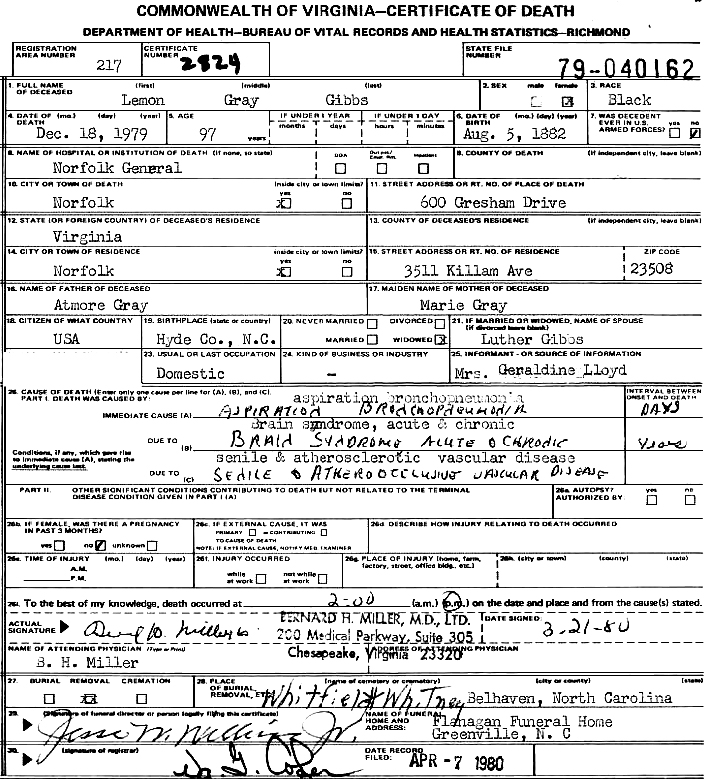 COMMONWEALTH OF VIRGINIA—CERTIFICATE OF DEATH
DEPARTMENT OF HEALTH—BUREAU OF VITAL RECORDS AND HEALTH STATISTICS—RICHMOND
REGISTRATION AREA NUMBER 217 CERTIFICATE NUMBER 2824 STATE FILE NUMBER 79-040162
1. FULL NAME OF DECEASED (first) (middle) (last) 2. SEX male female 3. RACE
Lemon Gray Gibbs Black
4. DATE OF DEATH (mo.) (day) (year) 5. AGE IF UNDER 1 YEAR IF UNDER 1 DAY 6. DATE OF BIRTH (mo.) (day) (year) 7. WAS DECEDENT EVER IN U.S. ARMED FORCES? yes no
Dec. 18, 1979 97 years months days hours minutes Aug. 5, 1882
8. NAME OF HOSPITAL OR INSTITUTION OF DEATH (if none, so state) DOA Out pat/Emer. Rm. Inpatient 9. COUNTY OF DEATH (if independent city, leave blank)
Norfolk General
10. CITY OR TOWN OF DEATH inside city or town limits? yes no 11. STREET ADDRESS OR RT. NO. OF PLACE OF DEATH
Norfolk x 600 Gresham Drive
12. STATE (OR FOREIGN COUNTRY) OF DECEASED'S RESIDENCE 13. COUNTY OF DECEASED'S RESIDENCE (if independent city, leave blank)
Virginia
14. CITY OR TOWN OF RESIDENCE inside city or town limits? yes no 15. STREET ADDRESS OR RT. NO. OF RESIDENCE ZIP CODE
Norfolk x 3511 Killam Ave 23508
16. NAME OF FATHER OF DECEASED 17. MAIDEN NAME OF MOTHER OF DECEASED
Atmore Gray Marie Gray
18. CITIZEN OF WHAT COUNTRY 19. BIRTHPLACE (state or country) 20. NEVER MARRIED DIVORCED 21. IF MARRIED OR WIDOWED, NAME OF SPOUSE (if divorced leave blank)
USA Hyde Co., N.C. MARRIED WIDOWED x Luther Gibbs
23. USUAL OR LAST OCCUPATION 24. KIND OF BUSINESS OR INDUSTRY 25. INFORMANT - OR SOURCE OF INFORMATION
Domestic - Mrs. Geraldine Lloyd
26. CAUSE OF DEATH (Enter only one cause per line for (A), (B), and (C). INTERVAL BETWEEN ONSET AND DEATH
PART I. DEATH WAS CAUSED BY: aspiration bronchopneumonia
IMMEDIATE CAUSE (A) ASPIRATION BRONCHOPNEUMONIA DAYS
brain syndrome, acute & chronic
DUE TO (B) BRAIN SYNDROME ACUTE & CHRONIC years
Conditions, if any, which gave rise to immediate cause (A), stating the underlying cause last. senile & atherosclerotic vascular disease
DUE TO (C) SENILE & ATHEROOCCLUSIVE VASCULAR DISEASE
PART II. OTHER SIGNIFICANT CONDITIONS CONTRIBUTING TO DEATH BUT NOT RELATED TO THE TERMINAL DISEASE CONDITION GIVEN IN PART I (A) 26a. AUTOPSY? AUTHORIZED BY: yes no
26b. IF FEMALE, WAS THERE A PREGNANCY IN PAST 3 MONTHS? 26c. IF EXTERNAL CAUSE, IT WAS 26d DESCRIBE HOW INJURY RELATING TO DEATH OCCURRED
yes no unknown PRIMARY or CONTRIBUTING TO CAUSE OF DEATH
NOTE: IF EXTERNAL CAUSE, NOTIFY MED. EXAMINER
26e. TIME OF INJURY (mo.) (day) (year) 26f. INJURY OCCURRED 26g. PLACE OF INJURY (home, farm, factory, street, office bldg., etc.) 26h. (city or town) (county) (state)
A.M. P.M. while at work not while at work
26i. To the best of my knowledge, death occurred at 2-00 (a.m.) (p.m.) on the date and place and from the cause(s) stated.
ACTUAL SIGNATURE BERNARD H. MILLER, M.D., LTD. DATE SIGNED: 3-21-80
200 Medical Parkway, Suite 305
NAME OF ATTENDING PHYSICIAN (Type or Print) Chesapeake, Virginia 23320 ADDRESS OF ATTENDING PHYSICIAN
B. H. Miller
27. BURIAL REMOVAL CREMATION 28. PLACE OF BURIAL, REMOVAL, ETC. (name of cemetery or crematory) (city or county) (state)
xx Whitfield Whitney Belhaven, North Carolina
29. (Signature of funeral director or person legally filing this certificate) NAME OF FUNERAL HOME AND ADDRESS: Flanagan Funeral Home
Greenville, N. C
30. (signature of registrar) DATE RECORD FILED: APR -7 1980